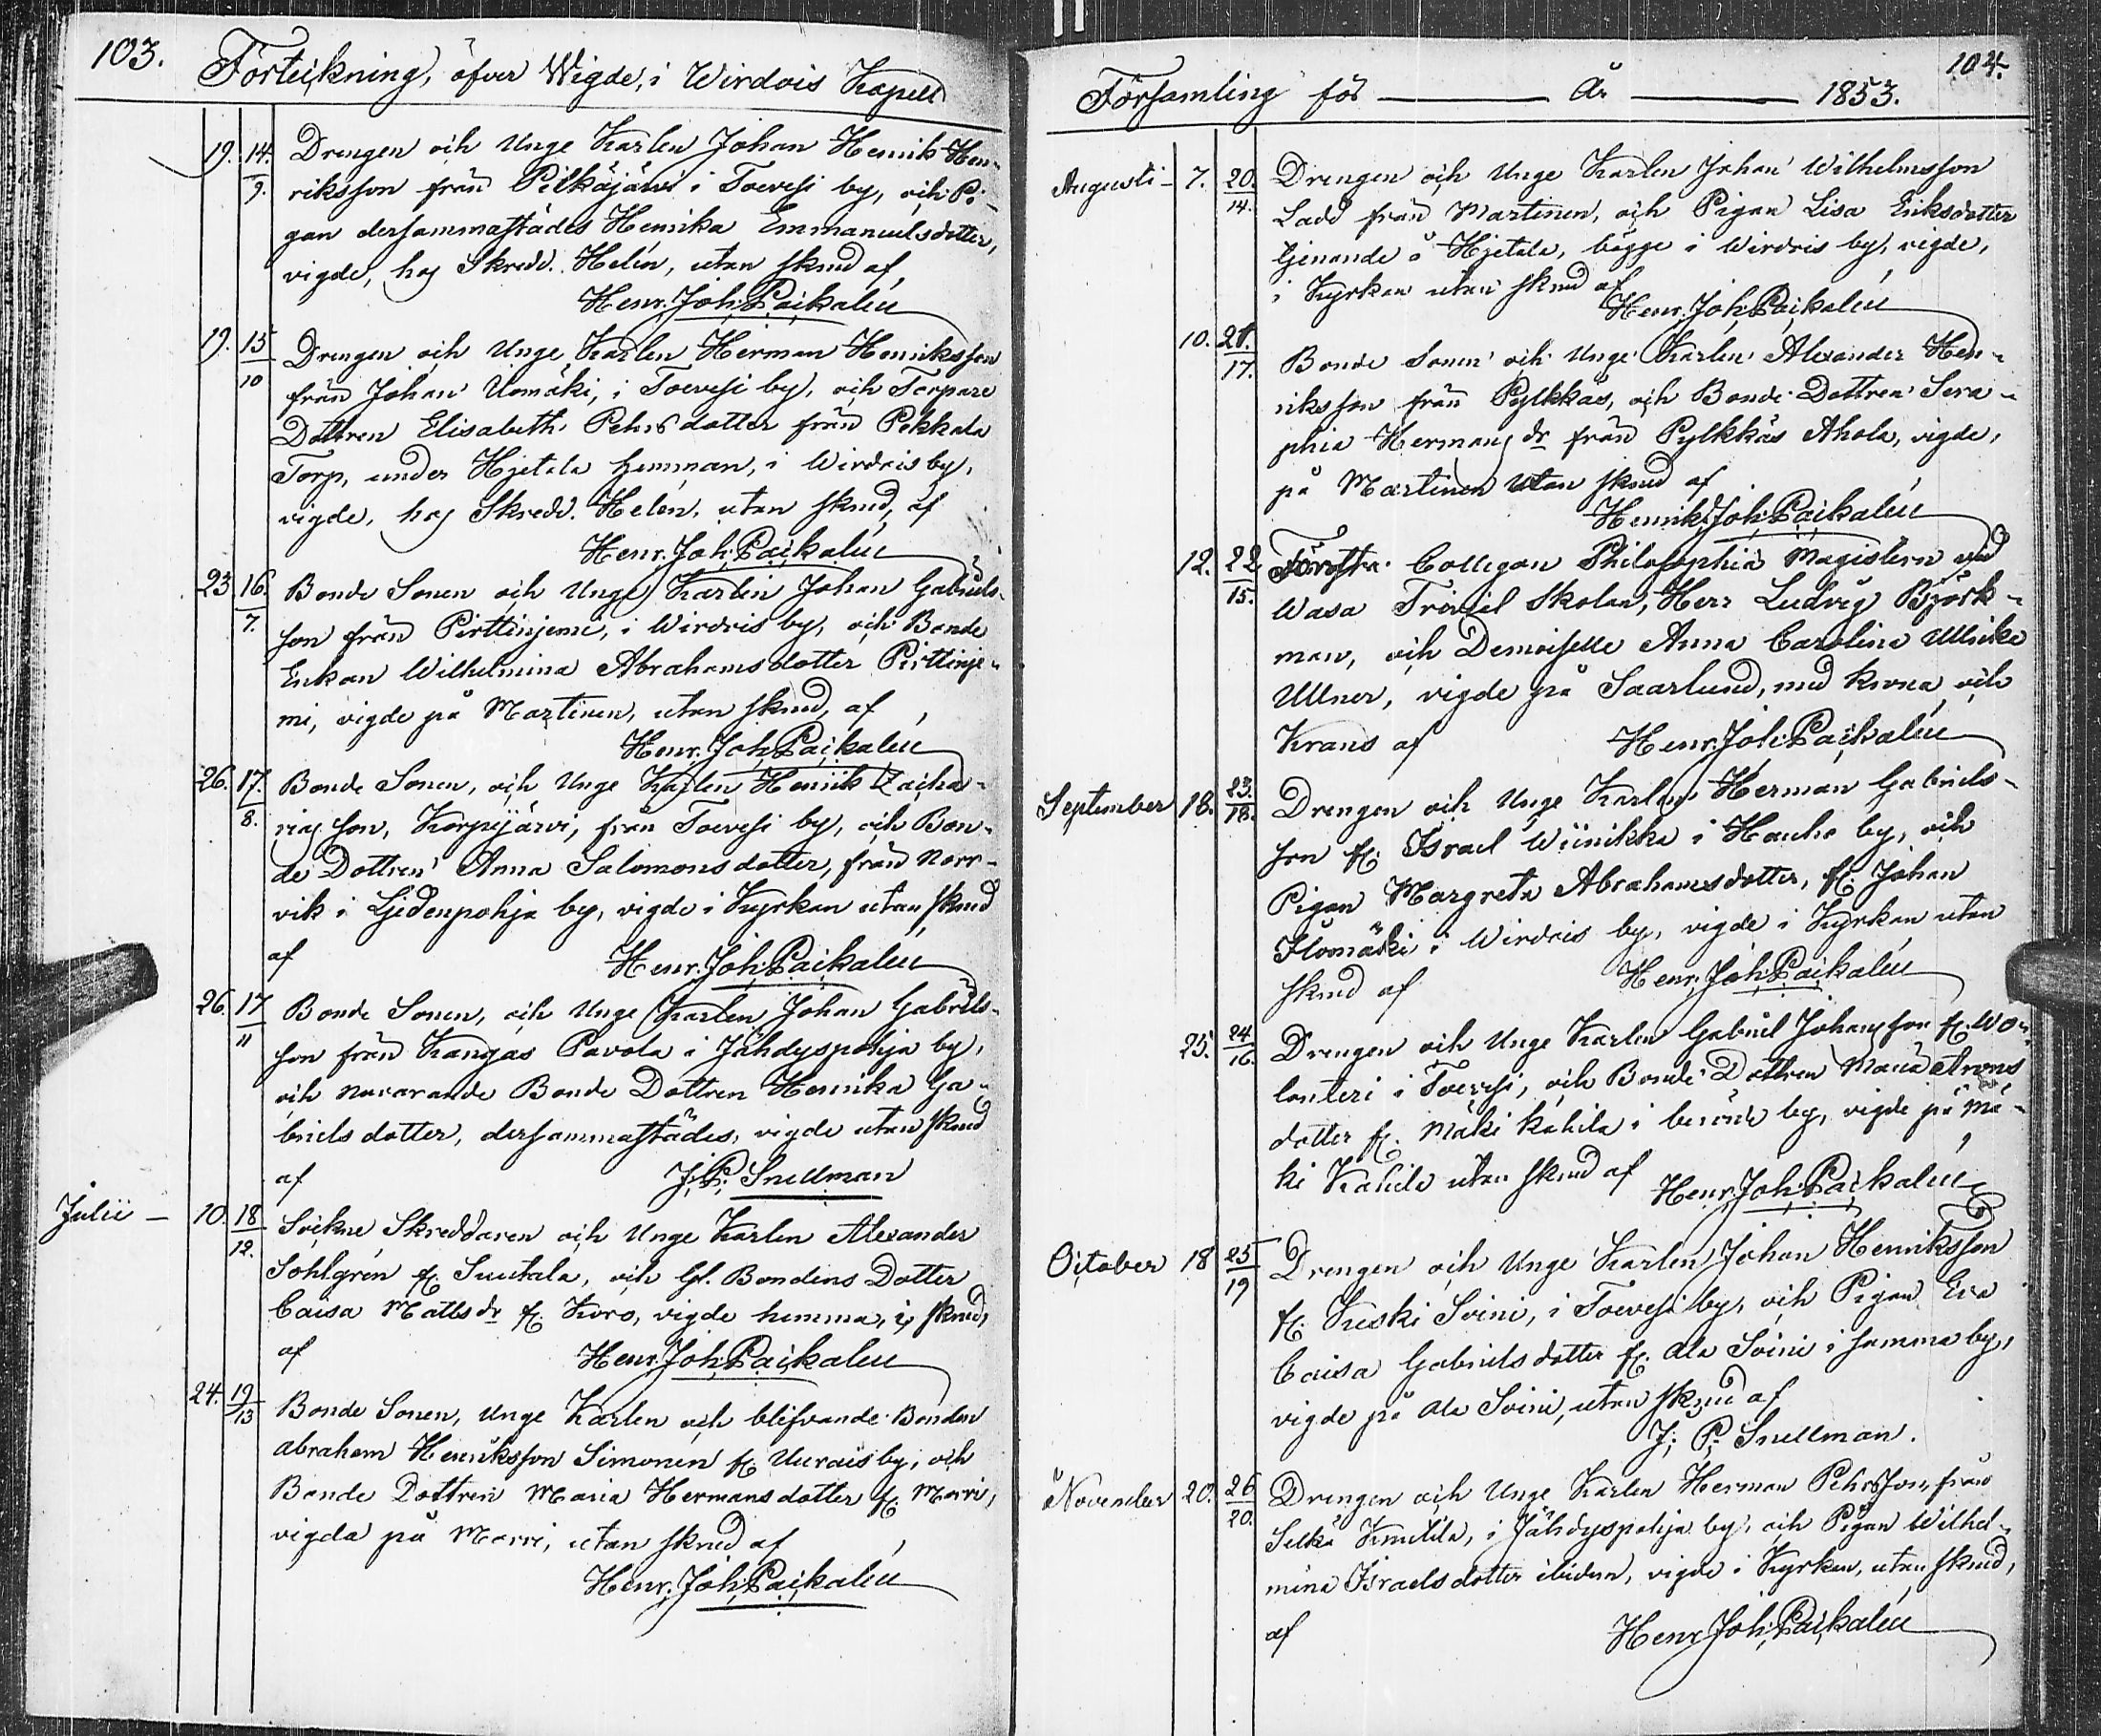 103.
Förteckning, öfver Wigde, i Wirdois Kapell
19. 14. Drengen och Unge Karlen Johan Henrik Hen-
9. riksson från Pitkäjärvi i Toevesi by, och Pi-
gan dersammastädes Henrika Emmanuelsdotter,
vigde, hos Skredd. Helén, utan skrud af,
Henr. Joh. Paikalén
19. 15 Drengen och Unge Karlen Herman Henriksson
10 från Johan Uomäki, i Toevesi by, och Torpare
Dottren Elisabeth Pehrsdotter från Pekkala
Torp, under Hjetala hemman, i Wirdois by,
vigde, hos Skredd. Helén, utan skrud, af
Henr. Joh. Paikalén
23 16. Bonde Sonen och Unge Karlen Johan Gabriels-
7. son från Pirttinjemi, i Wirdois by, och Bonde
Enkan Wilhelmina Abrahamsdotter Pirttinje-
mi, vigde på Martinen, utan skrud, af
Henr. Joh. Paikalén
26. 17. Bonde Sonen, och Unge Karlen Henrik Zacha-
8. rias son, Korpijärvi, från Toevesi by, och Bon-
de Dottren Anna Salomonsdotter, från Norr-
vik i Ljedenpohja by, vigde i Kyrkan utan skrud
af Henr. Joh. Paikalén
26. 17 Bonde Sonen, och Unge Karlen Johan Gabriels-
11 son från Kangas Pavola i Jähdyspohja by,
och navarande Bonde Dottren Henrika Ga-
brielsdotter, dersammastädes, vigde utan skrud
af J. P. Snellman
Julii — 10. 18 Sockne Skreddaren och Unge Karlen Alexander
12. Sohlgrén fr. Suutala, och Gl. Bondens Dotter
Caisa Mattsdr fr. Koro, vigde hemma, i skrud,
af Henr. Joh. Paikalén
24. 19 Bonde Sonen, Unge Karlen och blifvande Bonden
13 Abraham Henriksson Simonen fr. Uurais by, och
Bonde Dottren Maria Hermansdotter fr. Marri,
vigda på Marri, utan skrud af
Henr. Joh. Paikalén
104.
Församling för — År — 1853.
Augusti — 7. 20. Drengen och Unge Karlen Johan Wilhelmsson
14. Ladd från Martinen, och Pigan Lisa Eriksdotter
tjenande å Hjetala, bägge i Wirdois by, vigde,
i Kyrkan utan skrud af
Henr. Joh. Paikalén
10. 21. Bonde Sonen och Unge Karlen Alexander Hen-
17. riksson från Pylkkäs, och Bonde Dottren Sera-
phia Hermans dr från Pylkkäs Ahola, vigde,
på Martinen utan skrud af
Henrik Joh. Paikalén
12. 22 Första Collegan Philosophiæ Magistern vid
15. Wasa Trivial Skolan, Herr Ludvig Björk-
man, och Demoiselle Anna Carolina Ullrika
Ullner, vigde på Saarlund, med krona och
Krans af Henr. Joh. Paikalén
September 18. 23. Drengen och Unge Karlen Herman Gabriels-
18. son fr. Israel Wiinikka i Hauho by, och
Pigan Margreta Abrahamsdotter, fr. Johan
Flomäki i Wirdois by, vigde i Kyrkan utan
skrud af Henr. Joh. Paikalén
25. 24 Drengen och Unge Karlen Gabriel Johansson fr. Wo-
16. lanteri i Toevesi, och Bonde Dottren Maria Arons
dotter fr. Mäki Kahila i berörde by, vigde på Mä-
ki Kahila utan skrud af Henr. Joh. Paikalén
October 18 25 Drengen och Unge Karlen Johan Henriksson
19 fr. Keski Soini, i Toevesi by, och Pigan Eva
Caisa Gabrielsdotter fr. Ala Soini i samma by,
vigde på Ala Soini, utan skrud af
J. P. Snellman.
November 20. 26 Drengen och Unge Karlen Herman Pehrsson, från
20. Silkä Knutila, i Jähdyspohja by, och Pigan Wilhel-
mina Israelsdotter ibidem, vigde i Kyrkan, utan skrud,
af Henr. Joh. Paikalén